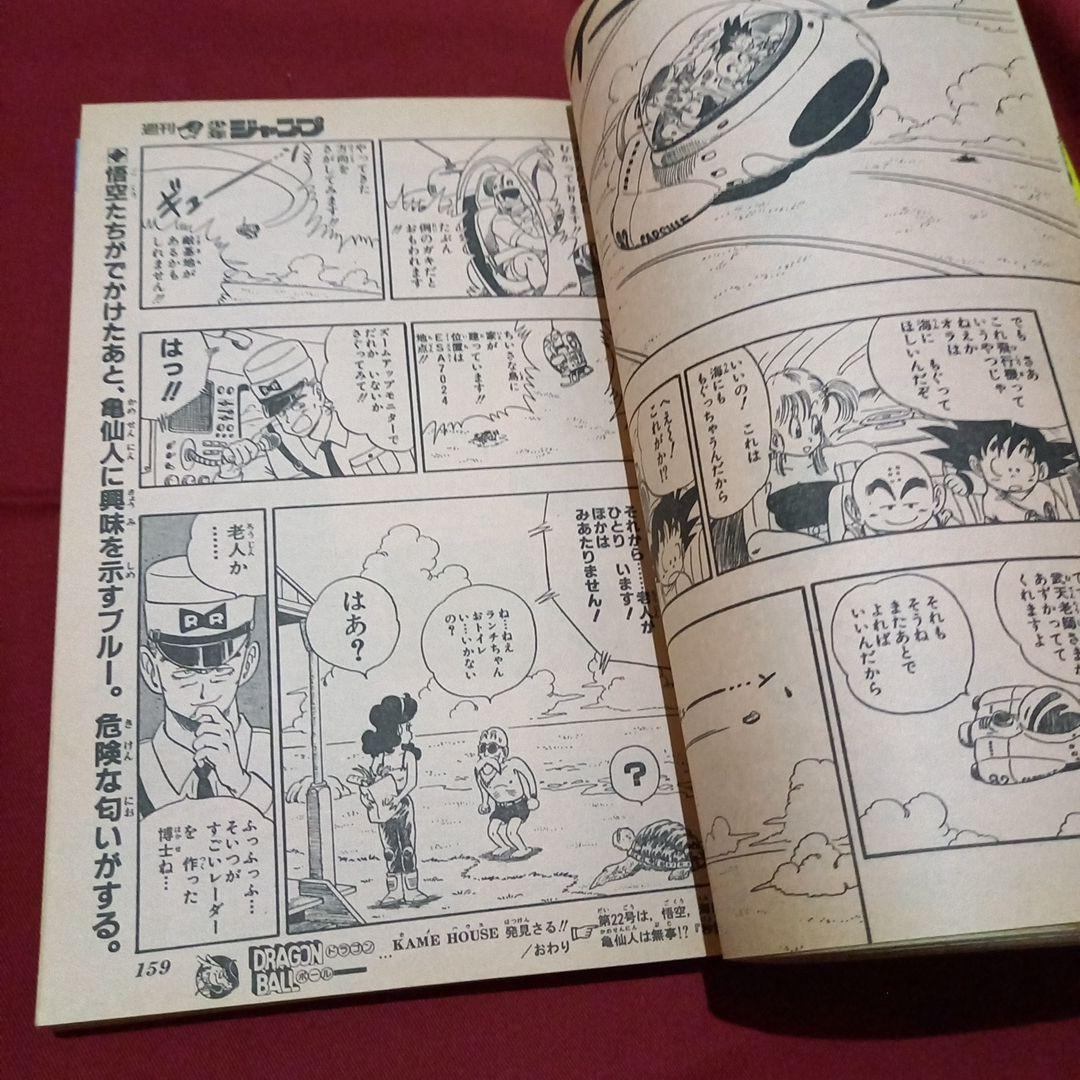 でも
これ飛行機って
いうやつじゃ
ねえか
さあ
オラは
海に もぐって
ほしいんだぞ
いいの! これは
海にも
もぐっちゃうんだから
へえ~~!
これがか!?
武天老師さまが
あずかってて
くれますよ
それも
そうね
またあとで
よれば
いいんだから
92
週刊少年ジャンプ
◆悟空たちがでかけたあと、亀仙人に興味を示すブルー。危険な匂いがする。
おります!!
たぶん
例のガキだと
おもわれます
やってきた
方向を
さがしてみます!!
敵基地が
あるかも
しれません!!
ちいさな島に
家が
建っています!!
位置は
ESA7024
地点!!
ズームアップモニターで
だれか いないか
さぐってみて!
はっ!!
それから……老人が
ひとり います!
ほかは
みあたりません!
ね…ねえ
ランチちゃん
おトイレ
い…いかない
の?
はあ?
?
老人か
……
RR
ふっふっふ…
そいつが
すごいレーダー
を 作った
博士ね…
159
DRAGON
BALL
ドラゴン
ボール
…KAME HOUSE 発見さる!!
/おわり
第22号は、悟空、
亀仙人は無事!?